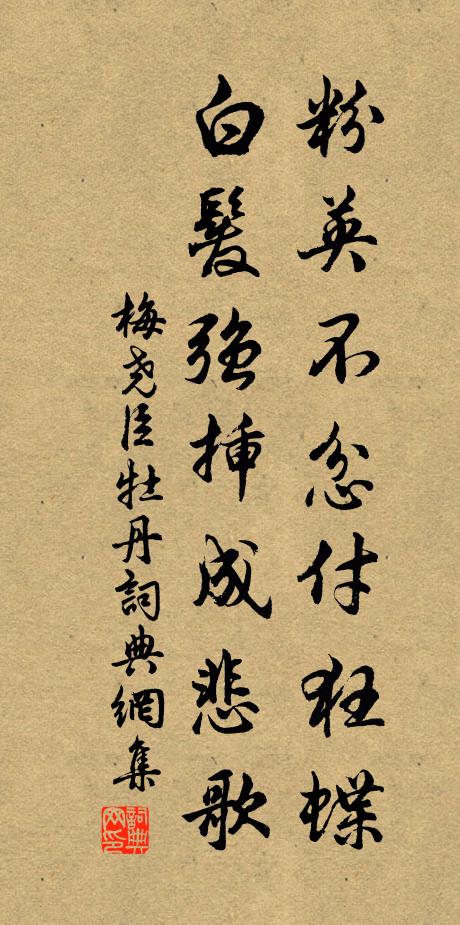 粉英不忿付狂蝶
白髮強插成悲歌
梅堯臣牡丹詞典網集
詞典網印